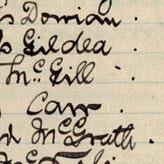 s Dorrian .
s Gildea .
McGill .
Carr .
d McGrath .